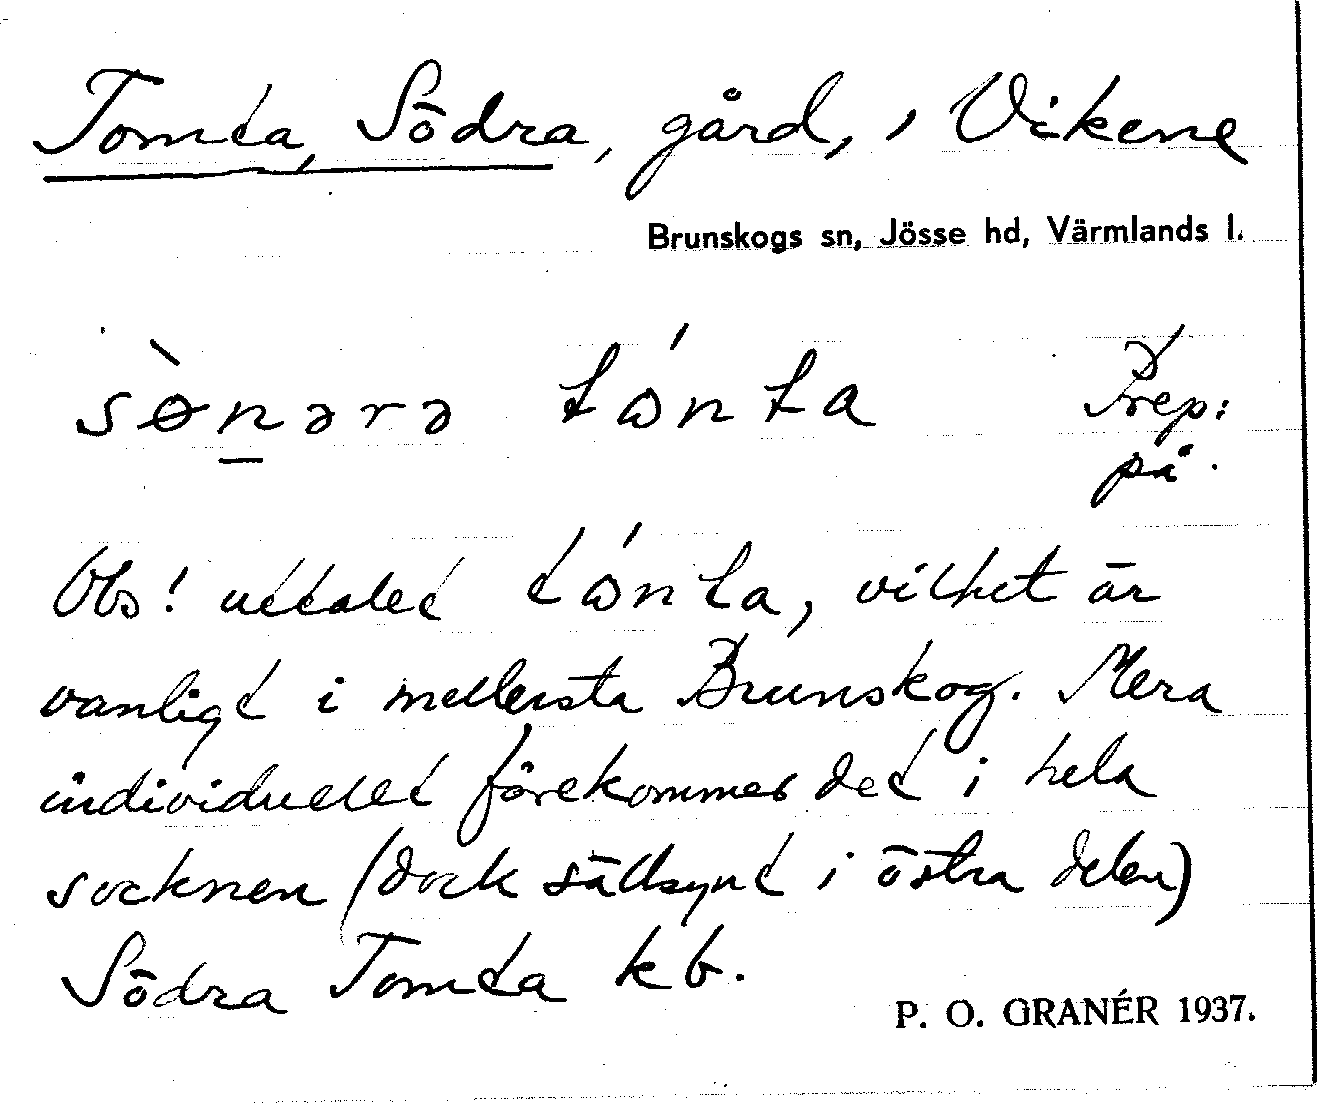 Tomta, Södra, gård, i Vikene
Brunskogs sn, Jösse hd, Värmlands l.
sø̀n̲ərə tɷ́nta Prep:
på.
Obs! uttalet tɷ́nta, vilket är
vanligt i mellersta Brunskog. Mera
individuellt förekommer det i hela
socknen (dock sällsynt i östra delen)
Södra Tomta kb.
P. O. GRANÉR 1937.